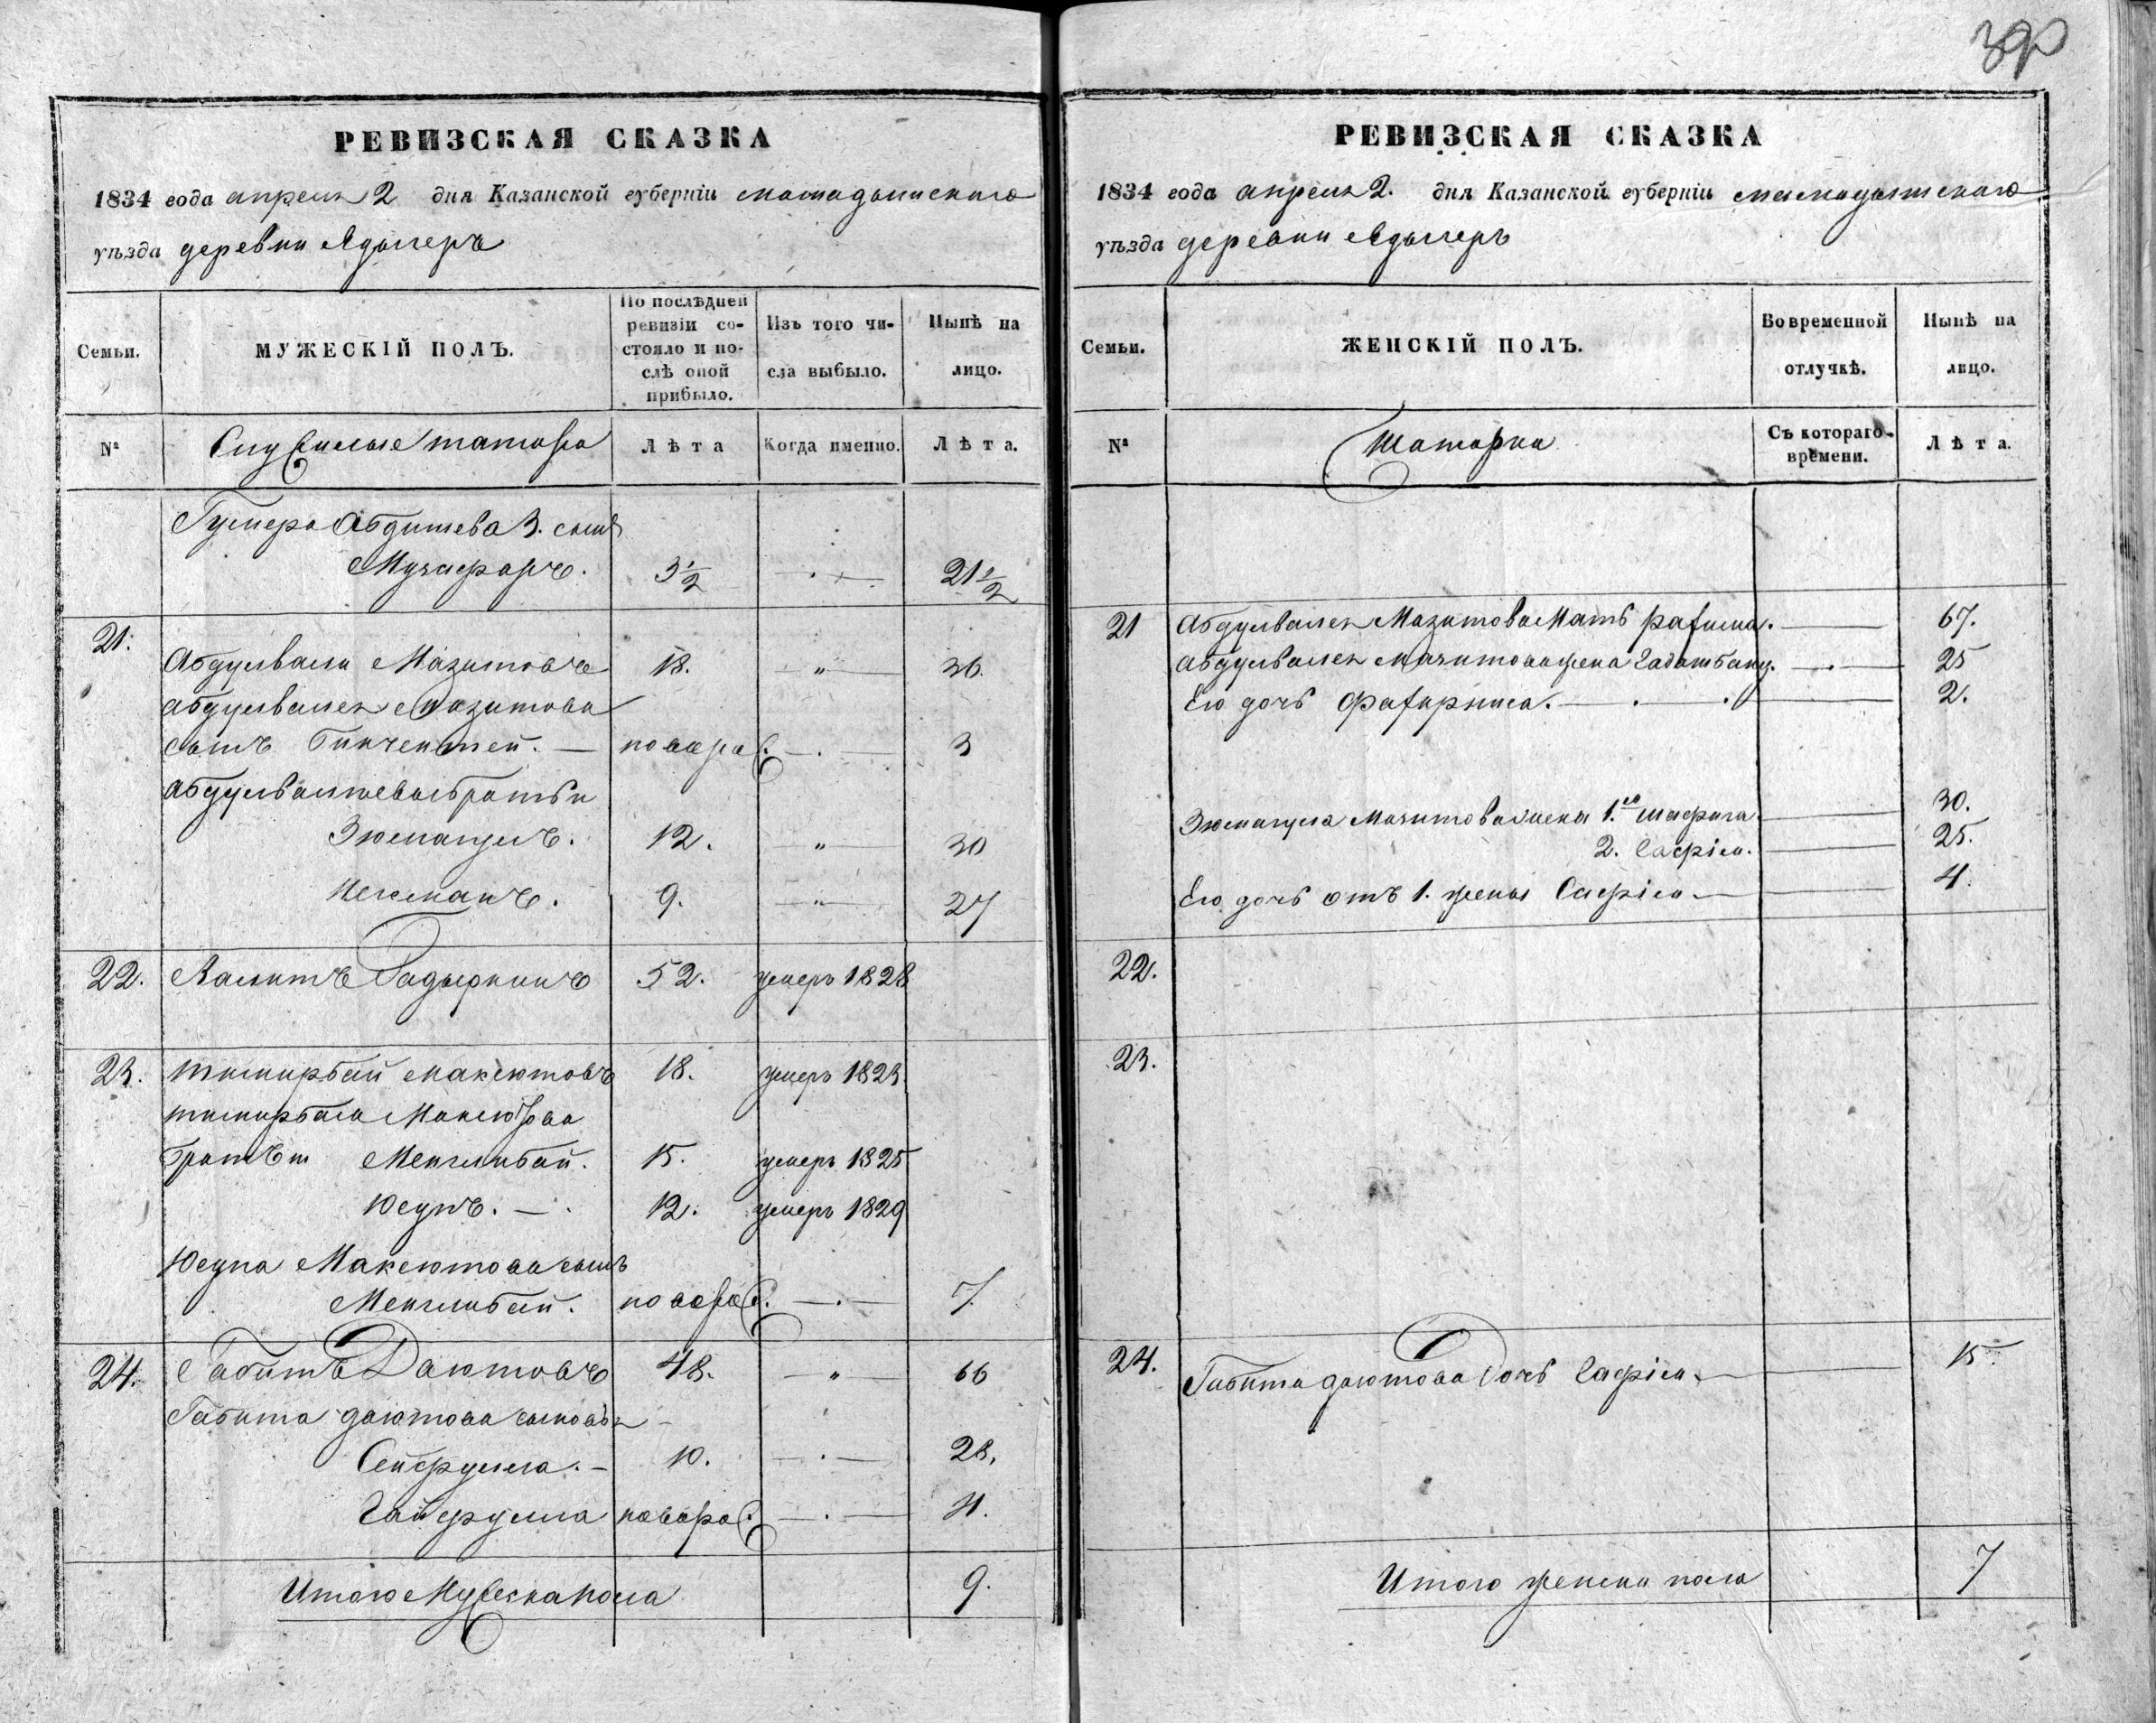 РЕВИЗСКАЯ СКАЗКА
1834 года апреля 2 дня Казанской губернiи мамадышскаго
уѣзда деревни Адыгеръ
Семьи.
МУЖЕСКIЙ ПОЛЪ.
По послѣдней ревизiи состояло и послѣ оной прибыло.
Изъ того числа выбыло.
Нынѣ на лицо.
№
Служилые татара
Лѣта
Когда именно.
Лѣта.
Гумера Абдишева 3. сынъ
Музафаръ. 3½ 21½
21. Абдулвали Мазитовъ 18. „ 36.
Абдулвалея Мазитова
сынъ новорож. 3
Абдулвалиевы братья
Зюмагулъ. 12. „ 30
9. „ 27
22. 52. умеръ 1828
23. тимирбай максютовъ 18. умеръ 1823.
тимирбая Максютова
братья Менглибай. 15. умеръ 1825
Юсупъ. 12. умеръ 1829
Юсупа Максютова сынъ
Менглибай. новорож. 7.
24. Габитъ Даютовъ 48. „ 66
Габита даютова сыновья
Сейфулла. 10. 28.
Хайрулла новорож. 11.
Итого Мужеска пола 9.
390
РЕВИЗСКАЯ СКАЗКА
1834 года апреля 2. дня Казанской губернiи мамадышскаго
уѣзда деревни Адыгеръ
Семьи.
ЖЕНСКIЙ ПОЛЪ.
Во временной отлучкѣ.
Нынѣ на лицо.
№
Татарки
Съ котораго времени.
Лѣта.
21 Абдулвалея Мазитова Мать 67.
Абдулвалея мазитова жена 25
Его дочь 2.
Зюмагула Мазитова жены 1.ая 30.
2. Сафiя. 25.
Его дочь отъ 1. жены Сафiя 4.
22.
23.
24. Габита даютова дочь Сафiя. 15.
Итого женска пола 7